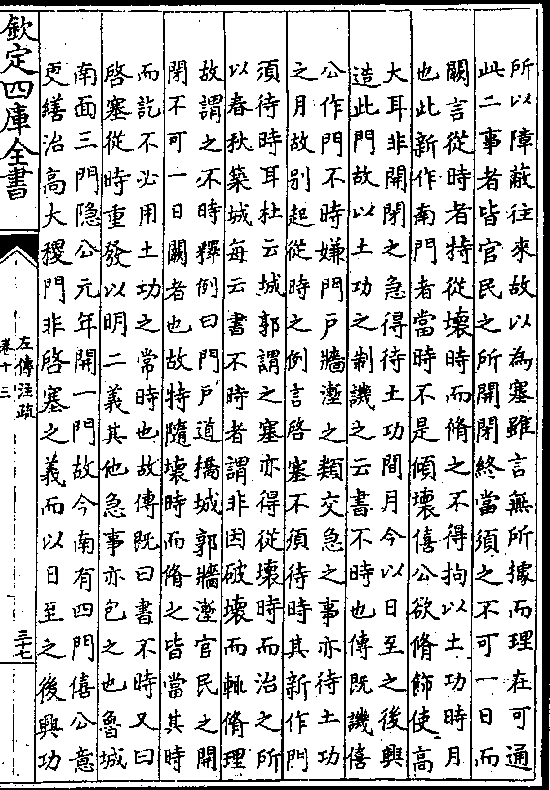 所以障蔽往來故以為塞雖言無所據而理在可通
此二事者皆官民之所開閉終當須之不可一日而
闕言從時者特從壊時而脩之不得拘以土功時月
也此新作南門者當時不是傾壊僖公欲脩飾使高
大耳非開閉之急得待土功間月今以日至之後興
造此門故以土功之制譏之云書不時也傳既譏僖
公作門不時嫌門戸牆壍之類交急之事亦待土功
之月故别起從時之例言啓塞不須待時其新作門
須待時耳杜云城郭謂之塞亦得從壊時而治之所
以春秋築城每云書不時者謂非因破壊而輒脩理
故謂之不時釋例曰門戸道橋城郭牆壍官民之開
閉不可一日闕者也故特隨壊時而脩之皆當其時
而訖不必用土功之常時也故傳既曰書不時又曰
啓塞從時重發以明二義其他急事亦包之也魯城
南面三門隐公元年開一門故今南有四門僖公意
更繕治高大稷門非啓塞之義而以日至之後興功
欽定四庫全書
左傳注疏
卷十三
三十七